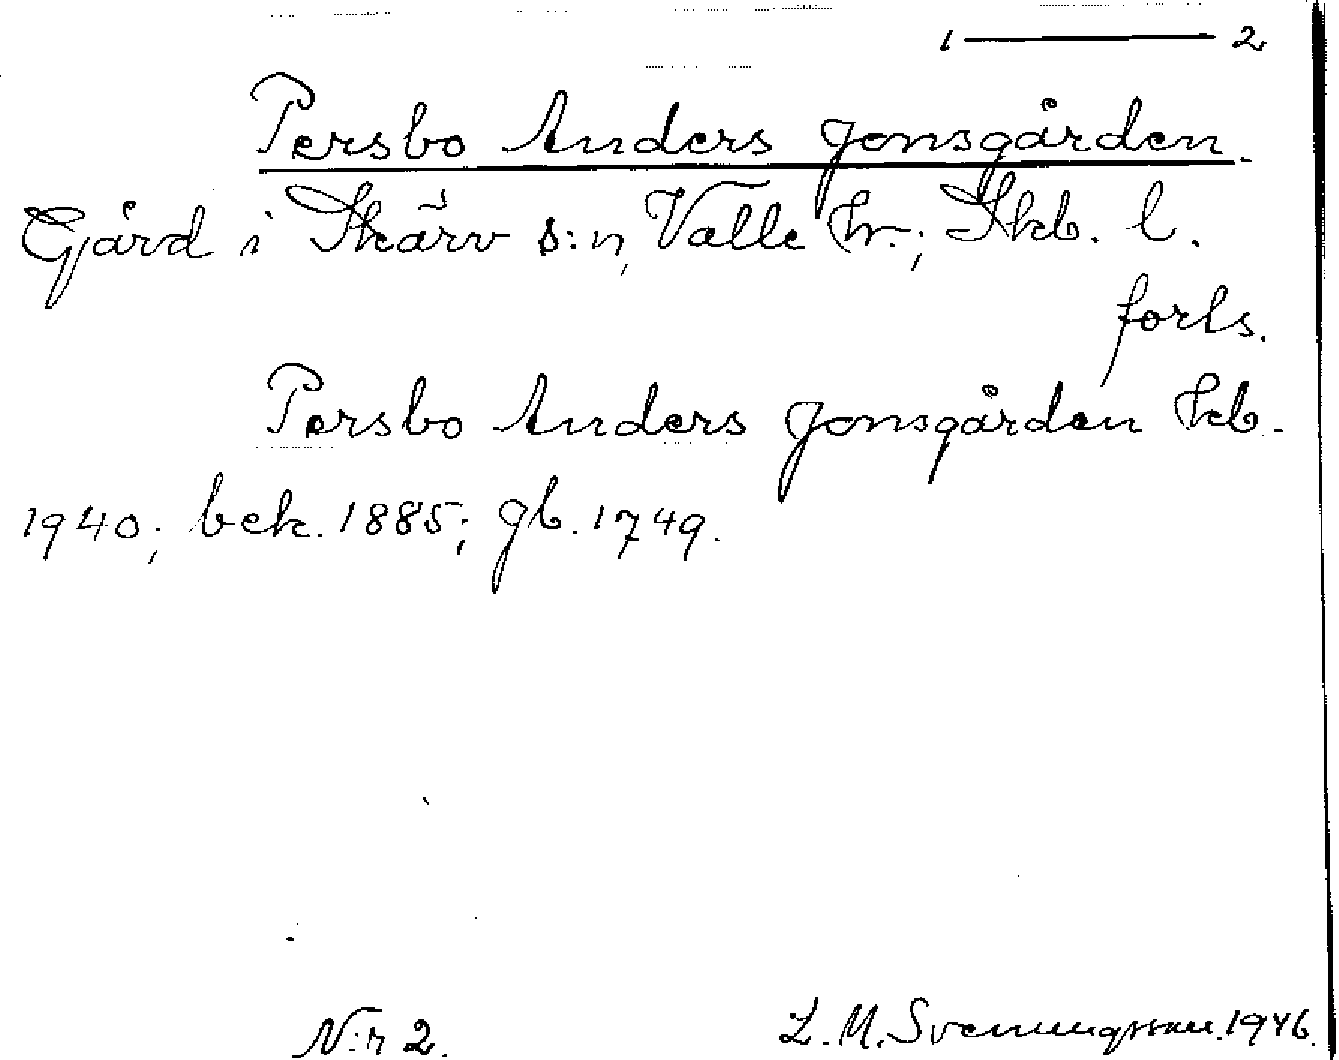 1 — 2
Persbo Anders Jonsgården.
Gård i Skärv s:n, Valle hr.; Skb. l.
forts.
Persbo Anders Jonsgården Hkb.
1940; bek. 1885; gb. 1749.
N:r 2. L. M. Svenungsson. 1946.